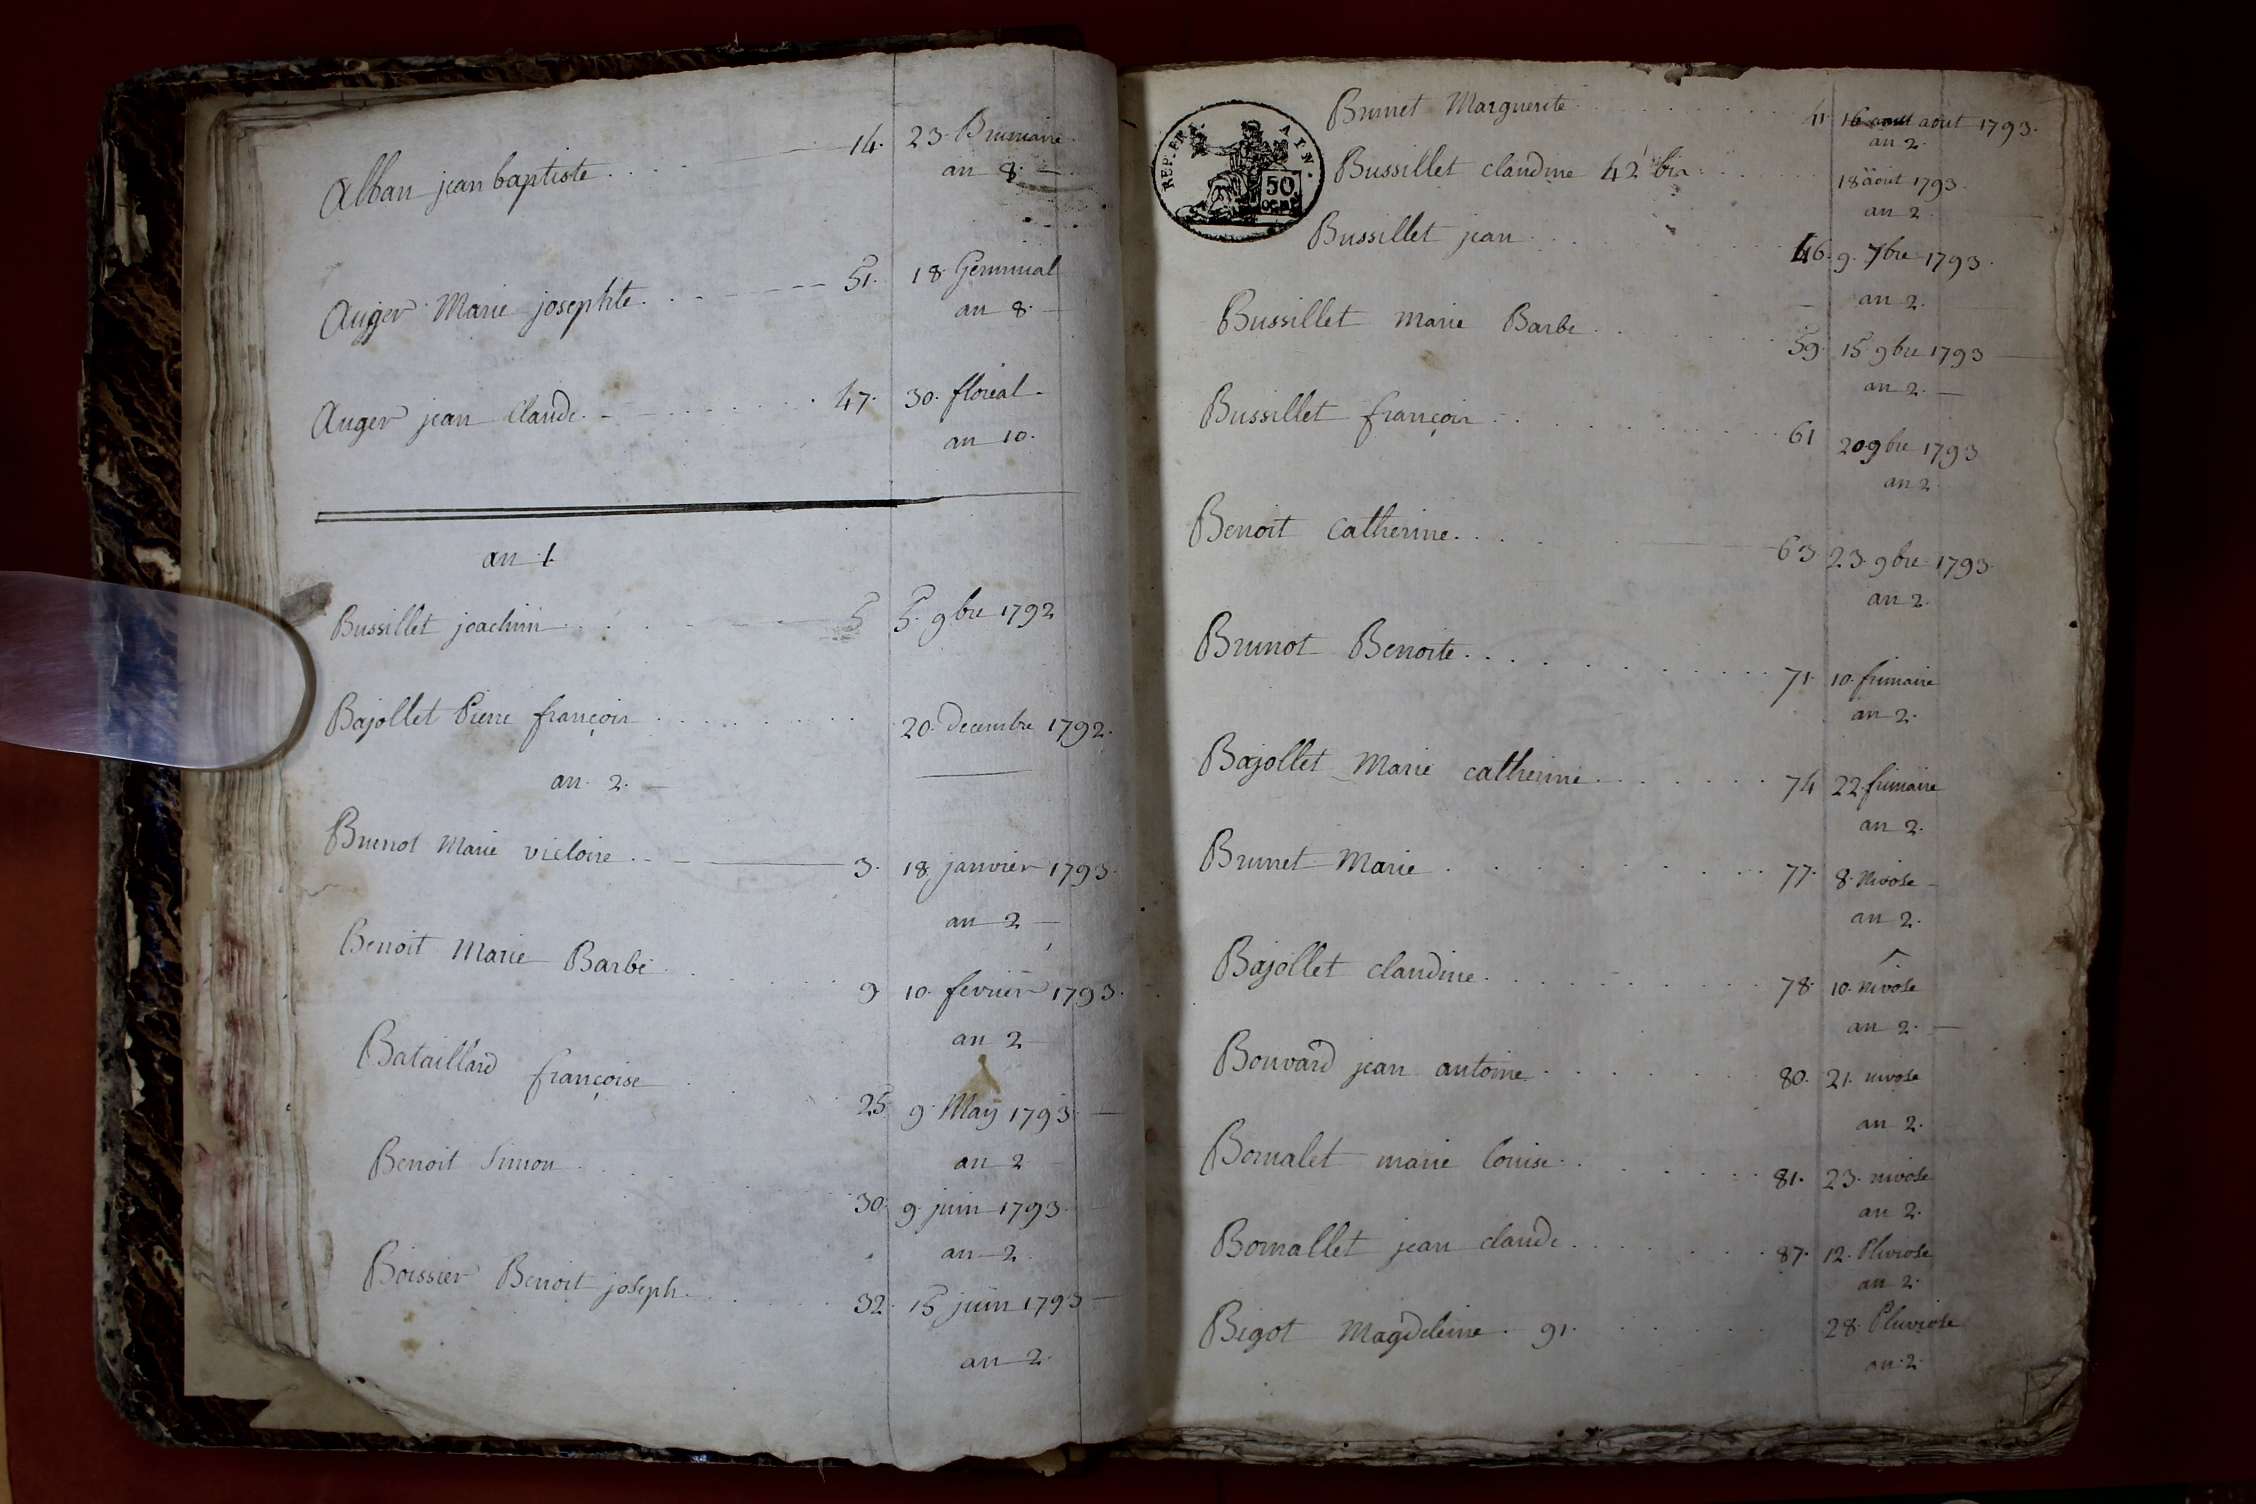 Alban jean baptiste 14. 23. Brumaire
an 8.
Auger Marie josephte 51. 18. Germinal
an 8.
Auger jean Claude 47. 30. floréal
an 10.
an 1
Bussillet joachim 5 5. 9bre 1792
Bajollet Pierre françois 20. decembre 1792.
an 2.
Brunot Marie victoire 3. 18 janvier 1793.
an 2
Benoit Marie Barbe 9 10. fevrier 1793.
an 2
Bataillard françoise 25 9. May 1793
an 2
Benoit Simon 30. 9. juin 1793.
an 2
Boissier Benoit joseph 32. 15 juin 1793
an 2.
REP. FRA. AYN.
50
Brunet Marguerite 41. 16 aout 1793.
an 2.
Bussillet claudine 42 bis 18 aout 1793.
an 2
Bussillet jean 46. 9. 7bre 1793.
an 2.
Bussillet marie Barbe 59. 15. 9bre 1793
an 2.
Bussillet françois 61 20 9bre 1793
an 2.
Benoit Catherine 63. 23. 9bre 1793.
an 2.
Brunot Benoite 71. 10. frimaire
an 2.
Bajollet Marie catherine 74 22 frimaire
an 2.
Brunet Marie 77. 8. Nivose
an 2.
Bajollet claudine 78. 10. nivose
an 2.
Bouvard jean antoine 80. 21. nivose
an 2.
Bornalet marie louise 81. 23. nivose
an 2.
Bornallet jean claude 87. 12. Pluviose
an 2.
Bigot Magdeleine 91. 28. Pluviose
an 2.